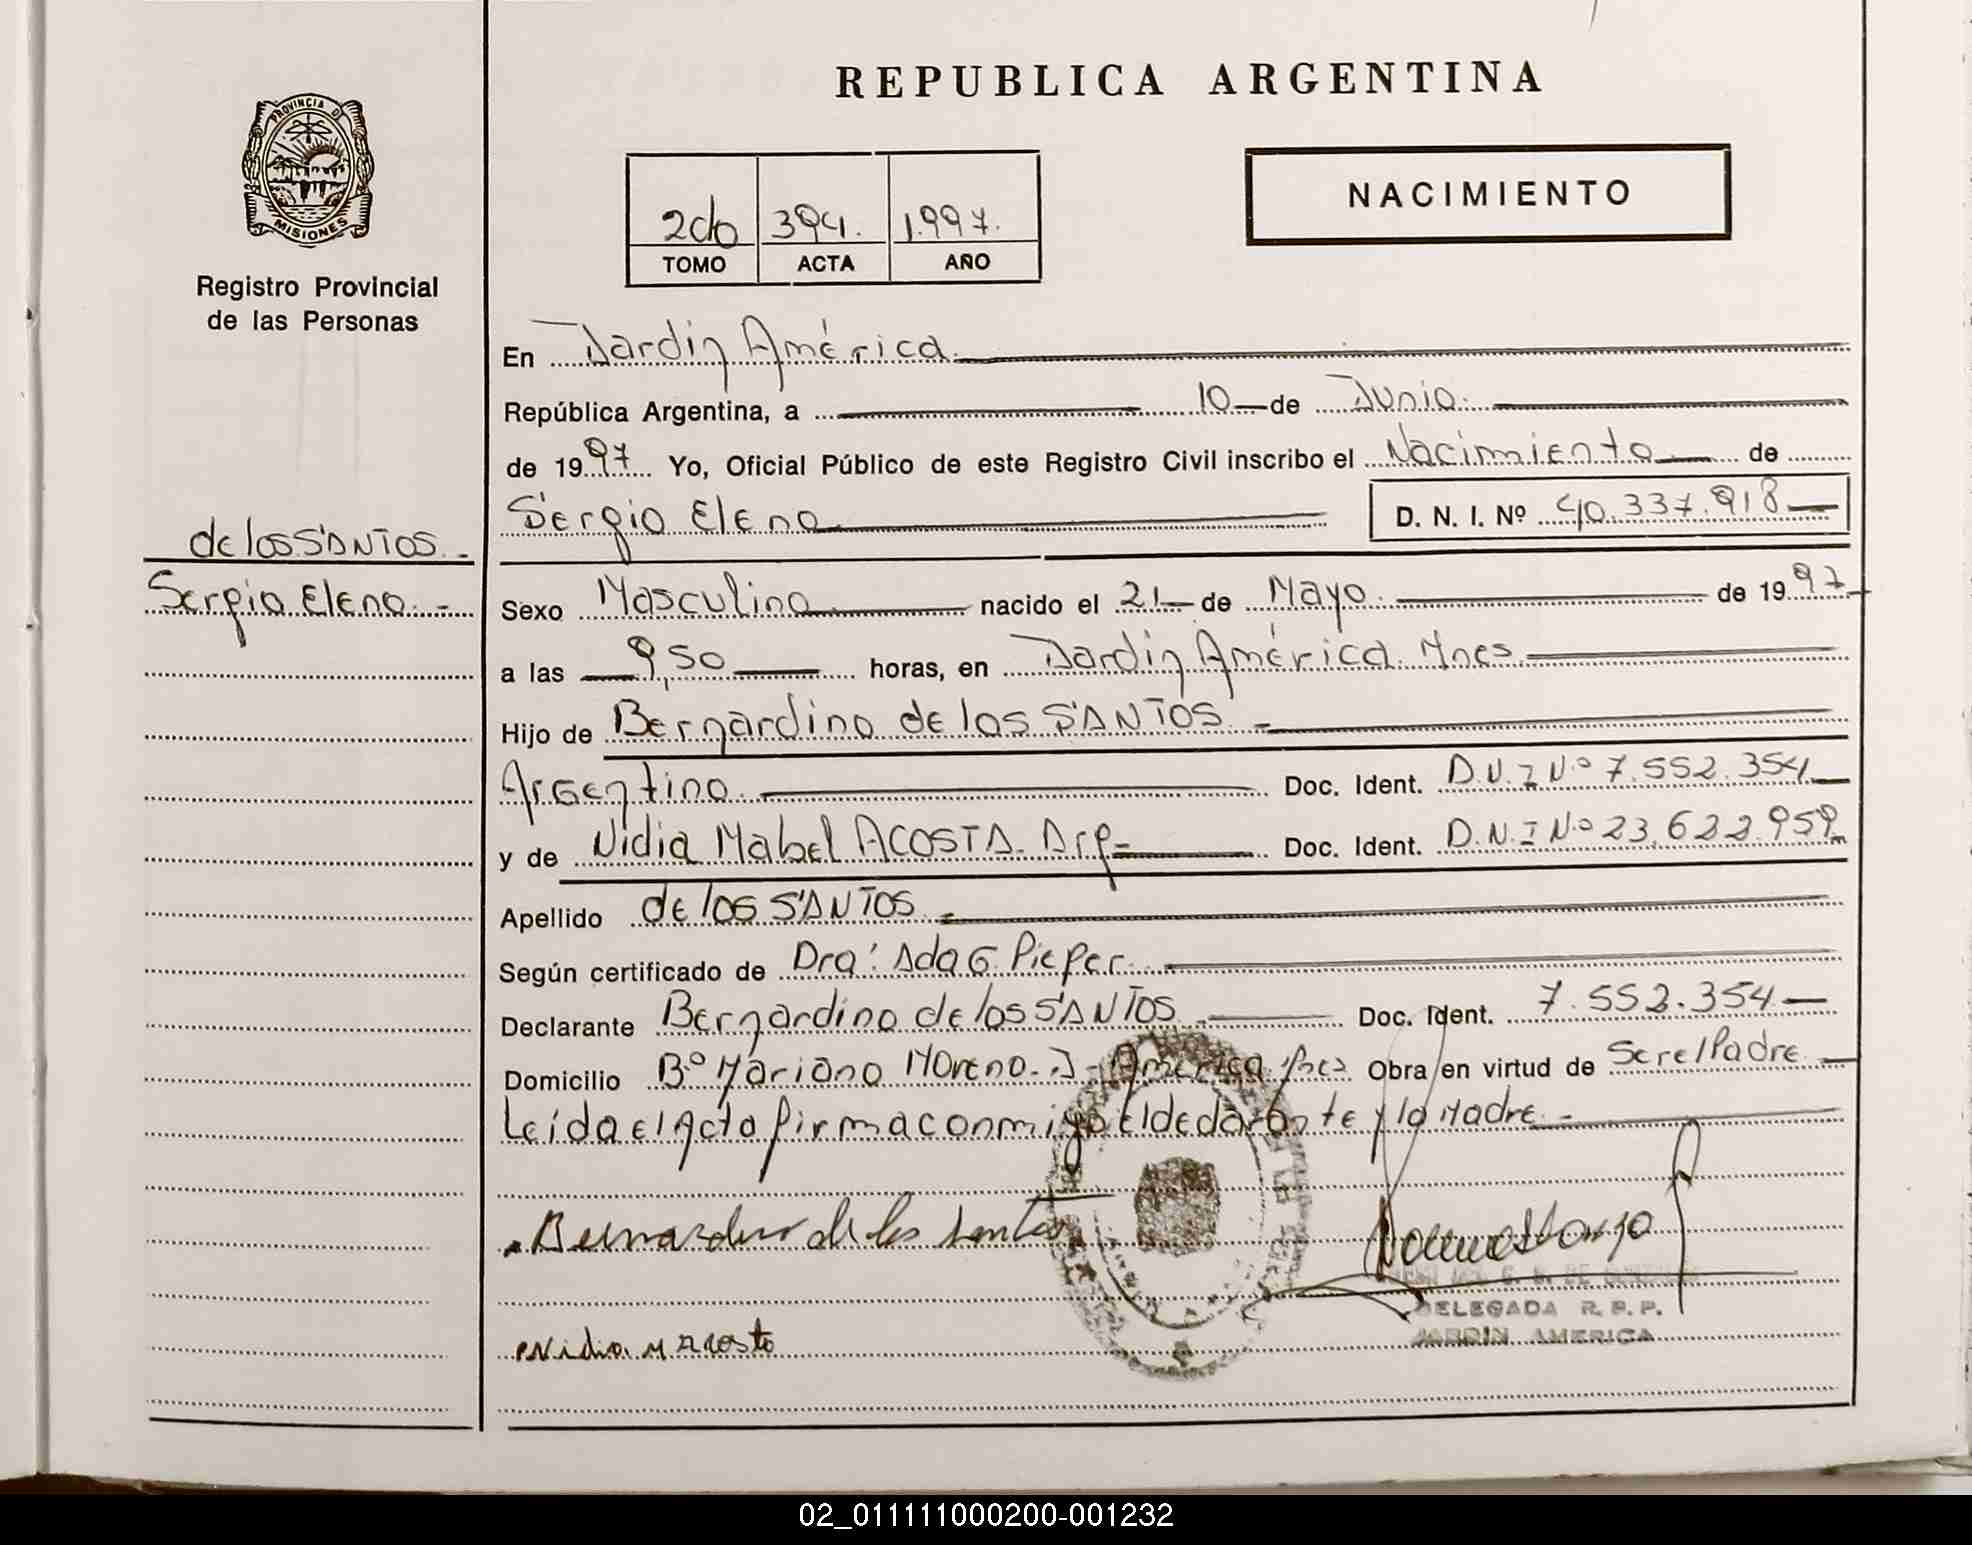 REPUBLICA ARGENTINA
PROVINCIA DE
MISIONES
Registro Provincial
de las Personas
2do 394. 1.997.
TOMO ACTA AÑO
NACIMIENTO
En Jardin América.
República Argentina, a 10 de Junio.
de 1997 Yo, Oficial Público de este Registro Civil inscribo el Nacimiento de
Sergio Eleno D. N. I. Nº 40.337.918
de los SANTOS.
Sergio Eleno.
Sexo Masculino nacido el 21 de Mayo. de 1997
a las 9,50 horas, en Jardin América. Mnes.
Hijo de Bernardino de los SANTOS.
Argentino. Doc. Ident. D.N.I Nº 7.552.354
y de Nidia Mabel ACOSTA. Arg. Doc. Ident. D.N.I Nº 23.622.959
Apellido de los SANTOS.
Según certificado de Dra. Ada G. Pieper.
Declarante Bernardino de los SANTOS Doc. Ident. 7.552.354
Domicilio Bº Mariano Moreno. J. América Mnes Obra en virtud de Ser el Padre.
Leída el Acta firma conmigo el declarante y la Madre.
Bernardino de los Santos
DELEGADA R. P. P.
JARDIN AMERICA
Nidia M Acosta
02_011111000200-001232